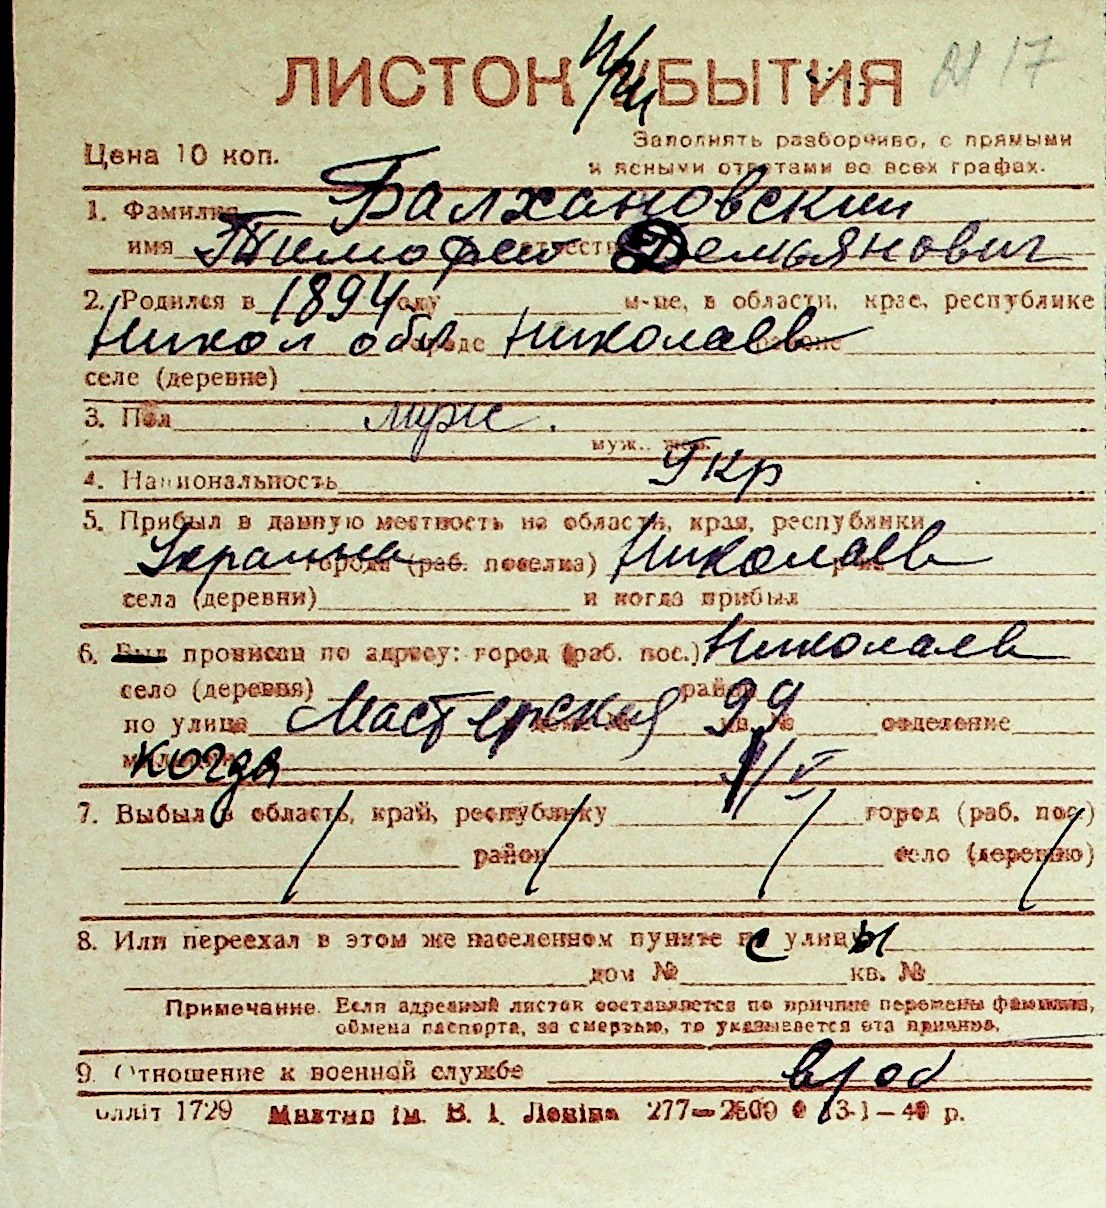 ЛИСТОК ПРИБЫТИЯ 21 17
Цена 10 коп. Заполнять разборчиво, с прямыми
и ясными ответами во всех графах.
1. Фамилия Балхановский
имя Тимофей отчество Демьянович
2. Родился в 1894 году м-це, в области, крае, республике
Никол обл городе Николаев районе
селе (деревне)
3. Пол муж.
муж. жен.
4. Национальность Укр
5. Прибыл в данную местность из области, края, республики
Украина города (раб. поселка) Николаев
села (деревни) и когда прибыл
6. Был прописан по адресу: город (раб. пос.) Николаев
село (деревня) район
по улице Мастерская 99 кв. № отделение
милиции когда 1/V
7. Выбыл в область, край, республику город (раб. пос.)
район село (деревню)
8. Или переехал в этом же населенном пункте с улицы
дом № кв. №
Примечание. Если адресный листок составляется по причине перемены фамилии,
обмена паспорта, за смертью, то указывается эта причина.
9. Отношение к военной службе в/об
Оллiт 1729 Миктип iм. В. I. Ленiна 277—2500 13-I—4 р.